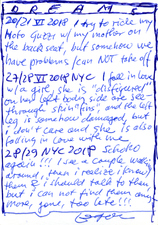 DREAMS
20/21 VI 2018 I try to ride my
Moto Guzzi w/ my mother on
the back seat, but somehow we
have problems / can NOT take off
27/28 VI 2018 NYC I fall in love
w/ a girl, she is "disfigured"
on her left body side are see-
through skin "fins" and the left
leg is somehow damaged, but
i don't care and she is also
falling in love with me
28/29 NYC 2018
again!!! I see a couple walk
around, then i realize i know
them & i should talk to them
but i can not find them any
more, gone, too late!!!